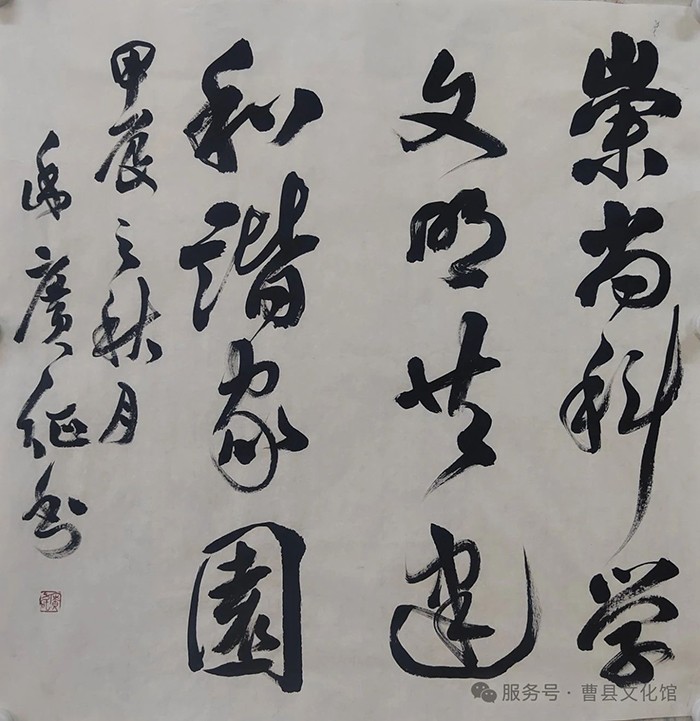 崇尚科学
文明共建
和諧家園
甲辰之秋月
廣征书
服务号·曹县文化馆